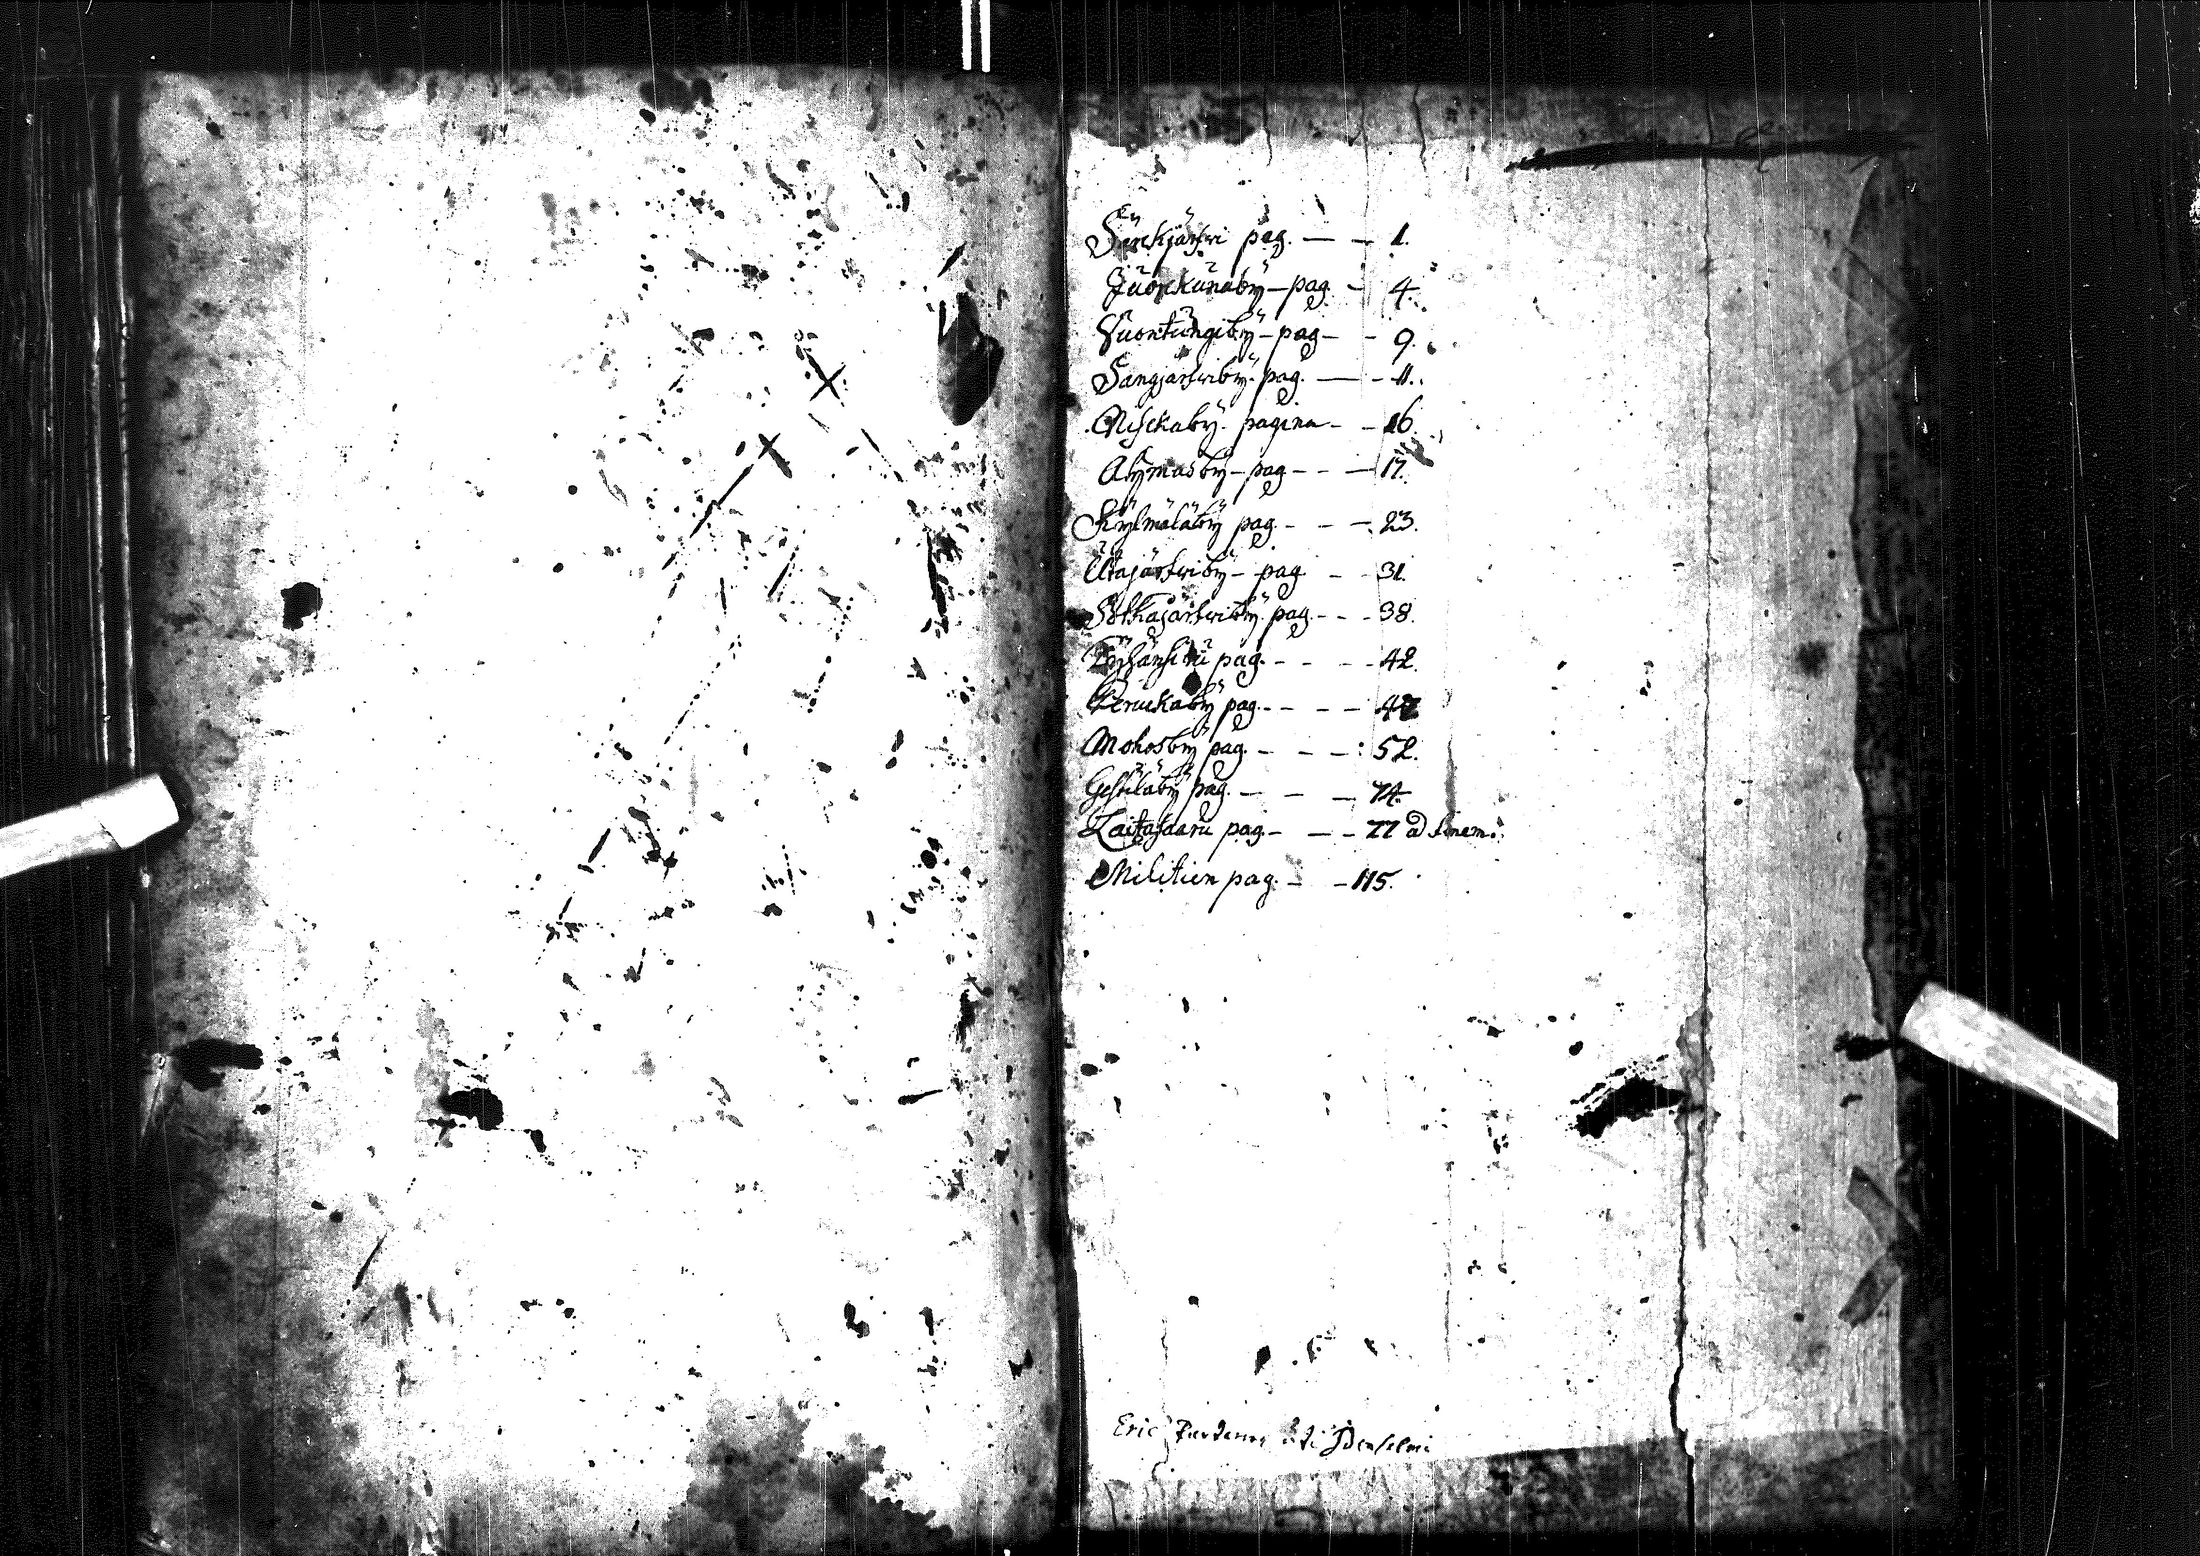 Särkijärfwi pag. — — 1.
Juorkunaby — pag. — 4.
Vuontungiby — pag — - 9.
Sangjärfwiby. pag. — - 11.
Niskaby. pagina — - 16.
Ahmasby — pag - - — 17.
Kylmäläby pag. - - — 23.
Utajärfwiby — pag - - 31.
Sotkajärfwiby. pag. - - - 38.
pag. - - - 42.
pag. - - - - 47
Mohosby pag. - - - : 52.
pag. — - — 74.
Laitasaaru pag. - — - 77 ad finem.
Militien pag. - - 115.
Eric